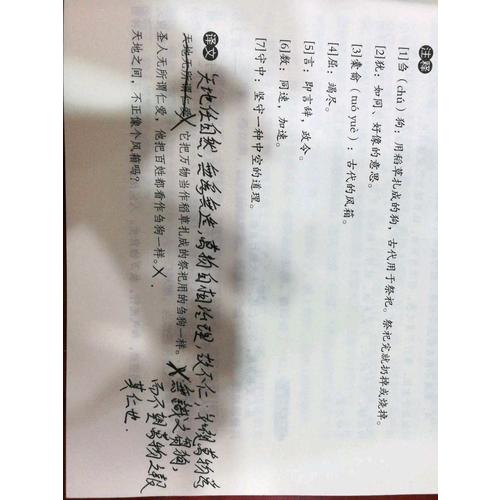 注释
[1]刍（chú）狗：用稻草扎成的狗，古代用于祭祀。祭祀完就扔掉或烧掉。
[2]犹：如同、好像的意思。
[3]橐龠（tuó yuè）：古代的风箱。
[4]屈：竭尽。
[5]言：即言辞，政令。
[6]数：同速，加速。
[7]守中：坚守一种中空的道理。
译文
天地任自然，無為無造，萬物自相治理，故不仁，萬物為
無識之芻狗，
而不萬物之報
其仁也.
天地无所谓仁爱，它把万物当作稻草扎成的祭祀用的刍狗一样。X
圣人无所谓仁爱，他把百姓都看作刍狗一样。X.
天地之间，不正像个风箱吗？